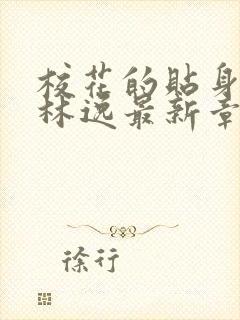 校花的贴身
林逸最新章
徐行